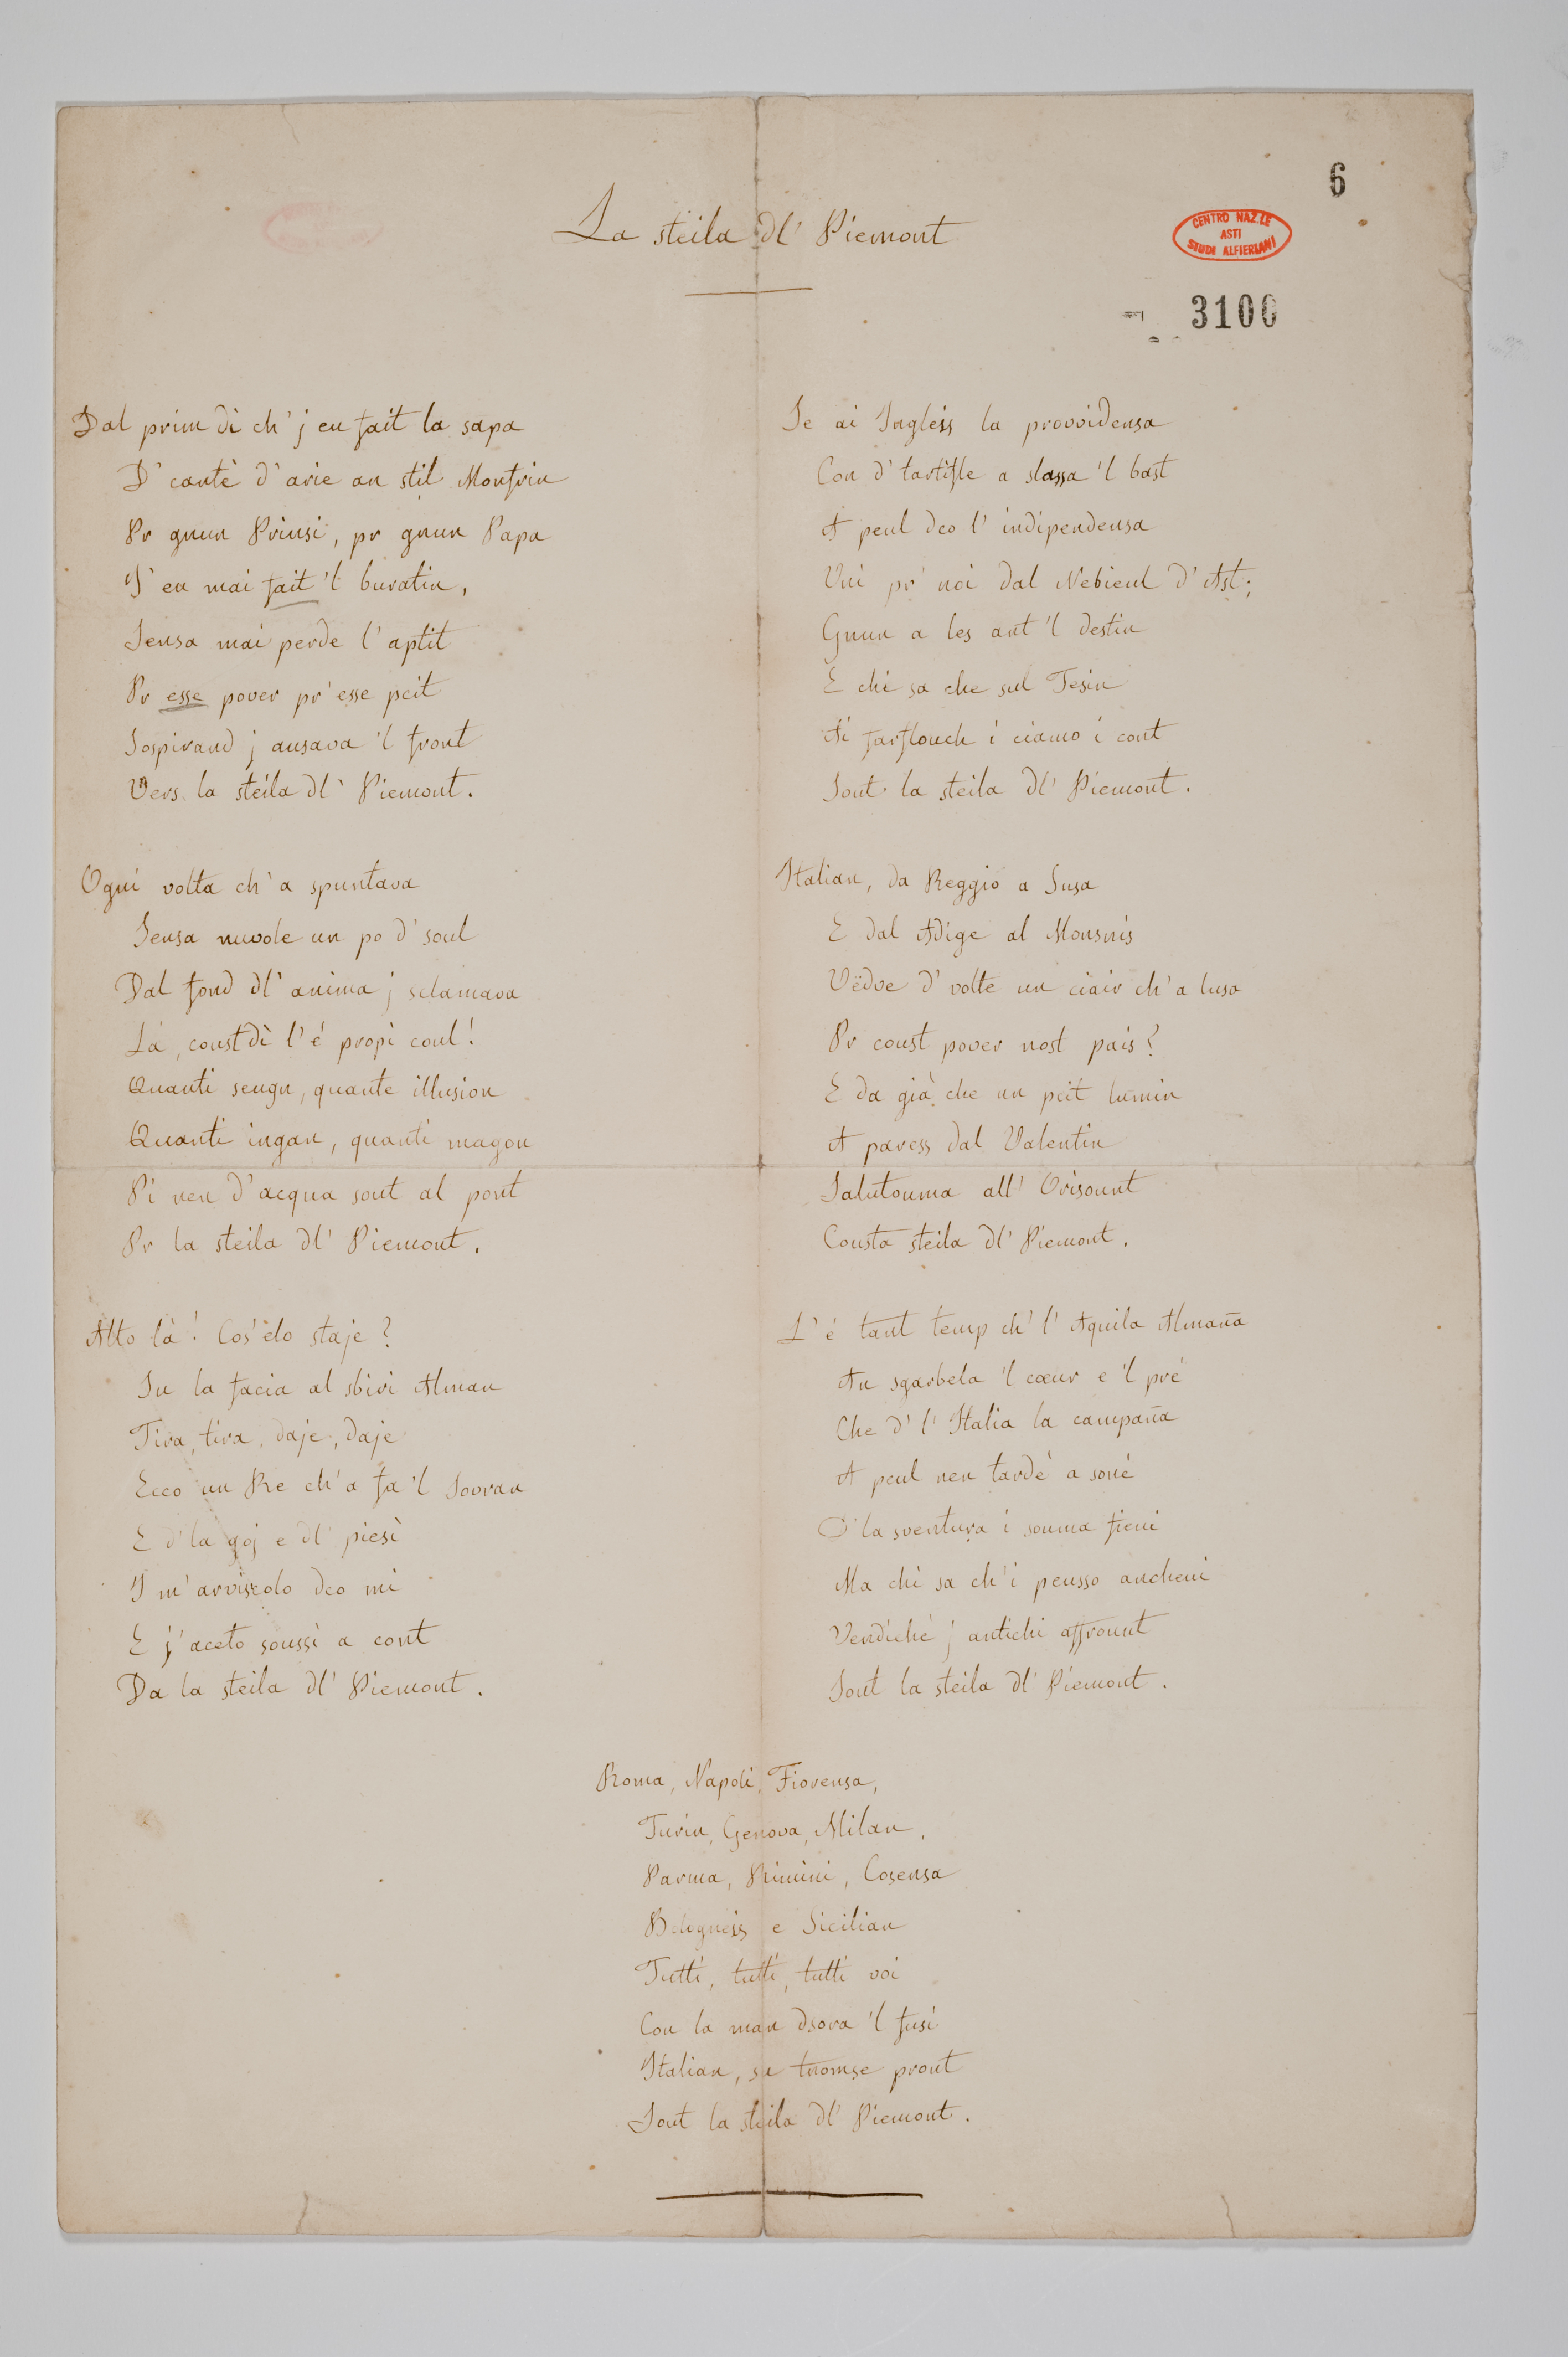 6
La steila dl' Piemont
CENTRO NAZ.LE
ASTI
STUDI ALFIERIANI
3100
Dal prim dì ch' j eu fait la sapa
D' cantè d' arie an stil Monfrin
Pr gnun Prinsi, pr gnun Papa
I' eu mai fait 'l buratin,
Sensa mai perde l' aptit
Pr esse pover pr' esse pcit
Sospirand j ausava 'l front
Vers la steila dl' Piemont.
Ogni volta ch' a spuntava
Sensa nuvole un po d' soul
Dal fond dl' anima j sclamava
Là, coust dì l' é propi coul!
Quanti seugn, quante illusion
Quanti ingan, quanti magon
Pi nen d' acqua sout al pont
Pr la steila dl' Piemont.
Alto là! Cos' elo staje?
Su la facia al sbiri Alman
Tira, tira, daje, daje
Ecco un Re ch' a fa 'l Sovran
E d' la goj e dl' piesì
I m' arviscolo dco mi
E j' aceto soussì a cont
Da la steila dl' Piemont.
Se ai Ingleis la provvidensa
Con d' tartifle a slassa 'l bast
A peul dco l' indipendensa
Vni pr' noi dal Nebieul d' Ast;
Gnun a les ant 'l destin
E chi sa che sul Tesin
Ai farflouch i ciamo i cont
Sout la steila dl' Piemont.
Italian, da Reggio a Susa
E dal Adige al Monsnis
Vëdve d' volte un ciair ch' a lusa
Pr coust pover nost pais?
E da già che un pcit lumin
A paress dal Valentin
Salutouma all' Orisount
Cousta steila dl' Piemont.
L' é tant temp ch' l' Aquila Almaña
An sgarbela 'l cœur e 'l pré
Che d' l' Italia la campaña
A peul nen tardé a soné
D' la sventura i souma fieui
Ma chi sa ch' i peusso ancheui
Vendiché j antichi affrount
Sout la steila dl' Piemont.
Roma, Napoli, Fiorensa,
Turin, Genova, Milan,
Parma, Rimini, Cosensa
Bologneis e Sicilian
Tutti, tutti, tutti voi
Con la man dsora 'l fusì
Italian, su tnomse pront
Sout la steila dl' Piemont.